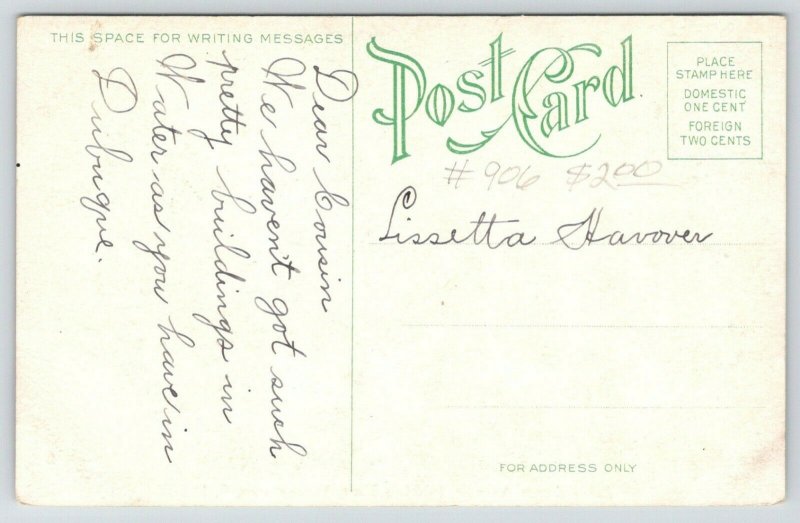 THIS SPACE FOR WRITING MESSAGES
Dear Cousin
We haven't got such
pretty buildings in
Water as you have in
Dubuque.
Post Card
PLACE
STAMP HERE
DOMESTIC
ONE CENT
FOREIGN
TWO CENTS
#906 $2.00
Lissetta Havover
FOR ADDRESS ONLY